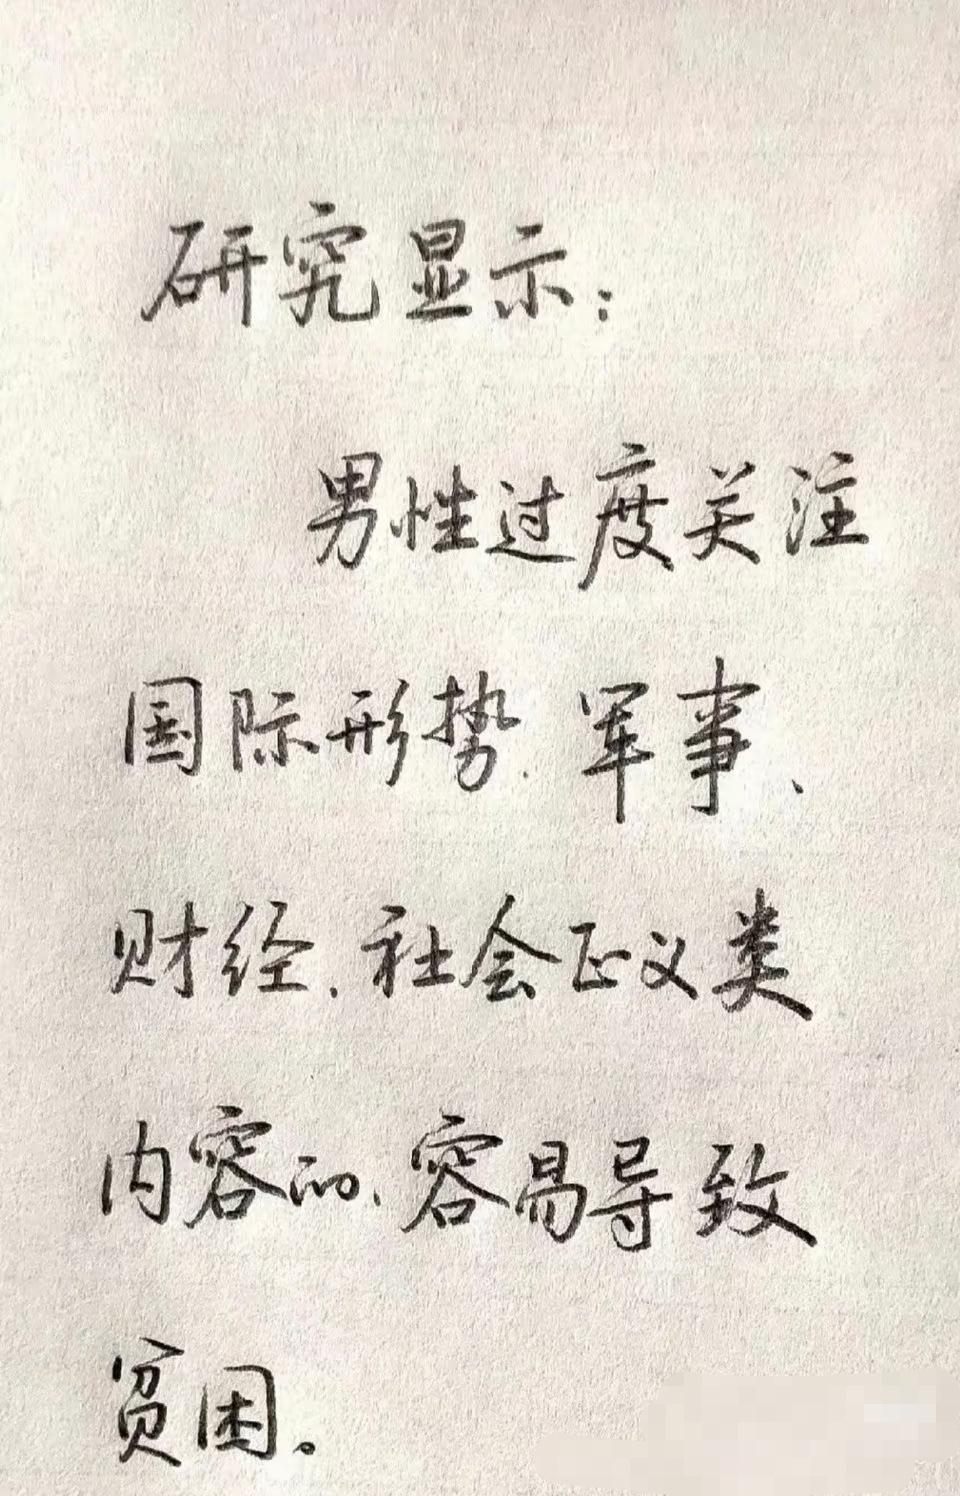 研究显示：
男性过度关注
国际形势、军事、
财经、社会正义类
内容的、容易导致
贫困。